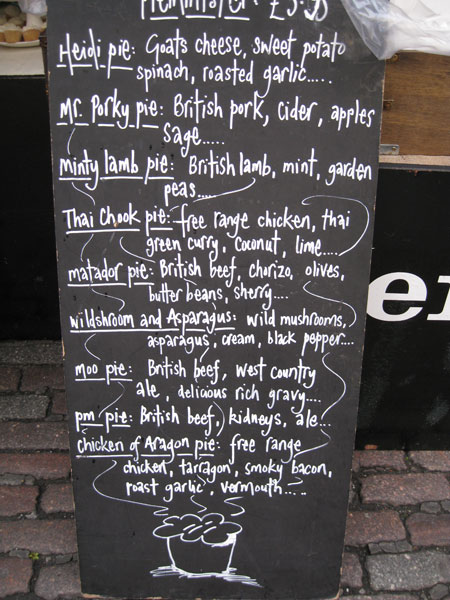 Heidi pie: Goats cheese, sweet potato
spinach, roasted garlic.....
Mr. Porky pie: British pork, cider, apples
sage.....
minty lamb pie: British lamb, mint, garden
peas....
Thai Chook pie: free range chicken, thai
green curry, coconut, lime....
matador pie: British beef, chorizo, olives,
butter beans, sherry....
wildshroom and Asparagus: wild mushrooms,
asparagus, cream, black pepper....
moo pie: British beef, west country
ale, delicious rich gravy....
pm pie: British beef, kidneys, ale...
chicken of Aragon pie: free range
chicken, tarragon, smoky bacon,
roast garlic, vermouth.....